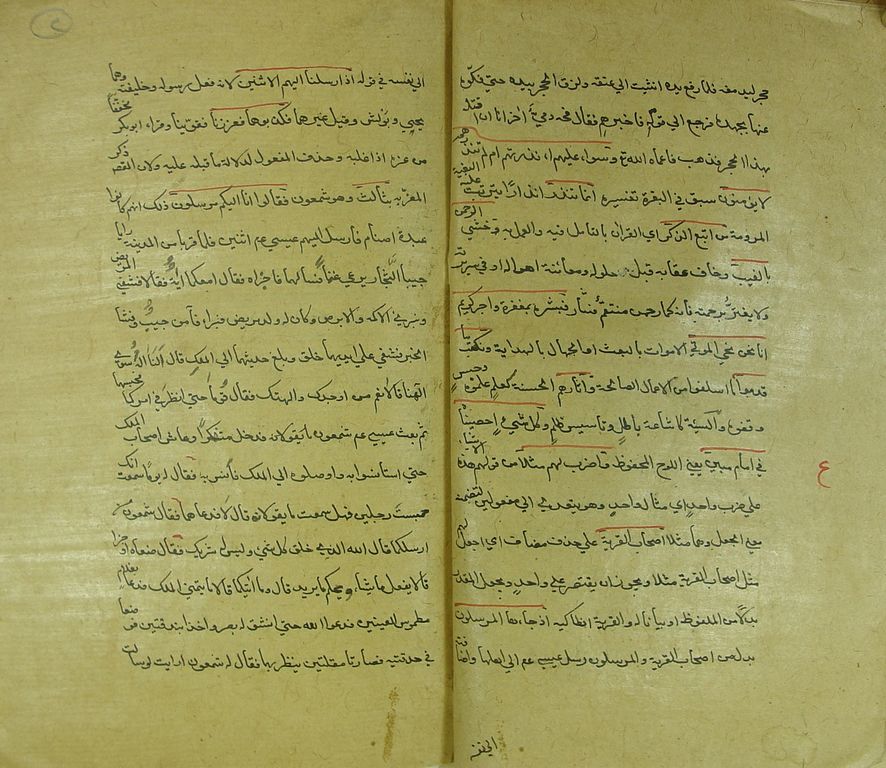 حجر ليدمغه فلما رفع يده انثنت الي عنقه ولزق الحجر بيده حتي فكوه
عنها بجهد فرجع الي قومه فاخبرهم فقال آخر انا اقتله
بهذا الحجر فذهب فاعماه الله تع وسواء عليهم ءانذرتهم ام لم تنذرهم
لا يؤمنون سبق في البقرة تفسيره انما تنذر انذارا يترتب عليه البغية
المرومة من اتبع الذكر اي القرآن بالتامل فيه والعمل به وخشي الرحمن
بالغيب وخاف عقابه قبل حلوله ومعاينة اهواله او في سريرته
ولا يغتر برحمته فانه كما رحمن منتقم قهار فبشره بمغفرة واجر كريم
انا نحن نحي الموتي الاموات بالبعث او الجهال بالهداية ونكتب ما
قدموا ما اسلفوا من الاعمال الصالحة وآثارهم الحسنة كعلم علموه وحبيس
وقفوه والسيئة كاشاعة باطل وتاسيس ظلم وكل شئ احصيناه
في امام مبين يعني اللوح المحفوظ واضرب لهم مثلا من قولهم هذه الاشياء
علي ضرب واحد اي مثال واحد وهو يتعدي الي مفعولين لتضمنه
معني الجعل وهما مثلا اصحاب القرية علي حذف مضاف اي اجعل لهم
مثل اصحاب القرية مثلا ويجوز ان يقتصر علي واحد ويجعل المقدر
بدلا من الملفوظ او بيانا له والقرية انطاكيه اذ جاءها المرسلون
بدل من اصحاب القرية والمرسلون رسل عيسي عم الي اهلها واضافته
ع
الي نفسه في قوله اذ ارسلنا اليهم اثنين لانه فعل رسوله وخليفته وهما
يحيي ويونس وقيل غيرهما فكذبوهما فعززنا فقوينا وقراء ابو بكر مخففا
من عزه اذا غلبه وحذف المفعول لدلالة ما قبله عليه ولان القصد ذكر
المعزز به بثالث وهو شمعون فقالوا انا اليكم مرسلون ذلك انهم كانوا
عبدة اصنام فارسل اليهم عيسي عم اثنين فلما قربا من المدينة رايا
حبيبا النجار يرعي غنما فسالهما فاخبراه فقال امعكما آية فقالا نشفي المريض
ونبرئ الاكمه والابرص وكان له ولد مريض فبرا فآمن حبيب وفشا
الخبر فشفي علي ايديهما خلق وبلغ حديثهما الي الملك قال النا اله سوي
آلهتنا قالا نعم من اوجدك والهتك فقال قوما حتي انظر في امركما فحبسهما
ثم بعث عيسي عم شمعون فدخل متنكرا وعاشر اصحاب الملك
حتي استانسوا به واوصلوه الي الملك فانس به فقال له يوما سمعت انك
حبست رجلين فهل سمعت ما يقولانه قال لا فدعاهما فقال شمعون من
ارسلكما قال الله الذي خلق كل شئ وليس له شريك فقال صفاه واوجزا
قالا يفعل ما يشاء ويحكم ما يريد قال وما آيتكما قالا ما يتمني الملك فدعا بغلام
مطموس العينين فدعوا الله حتي انشق له بصر واخذا بندقتين فوضعا
في حدقتيه فصارتا مقلتين ينظر بهما فقال له شمعون ارايت لو سالت